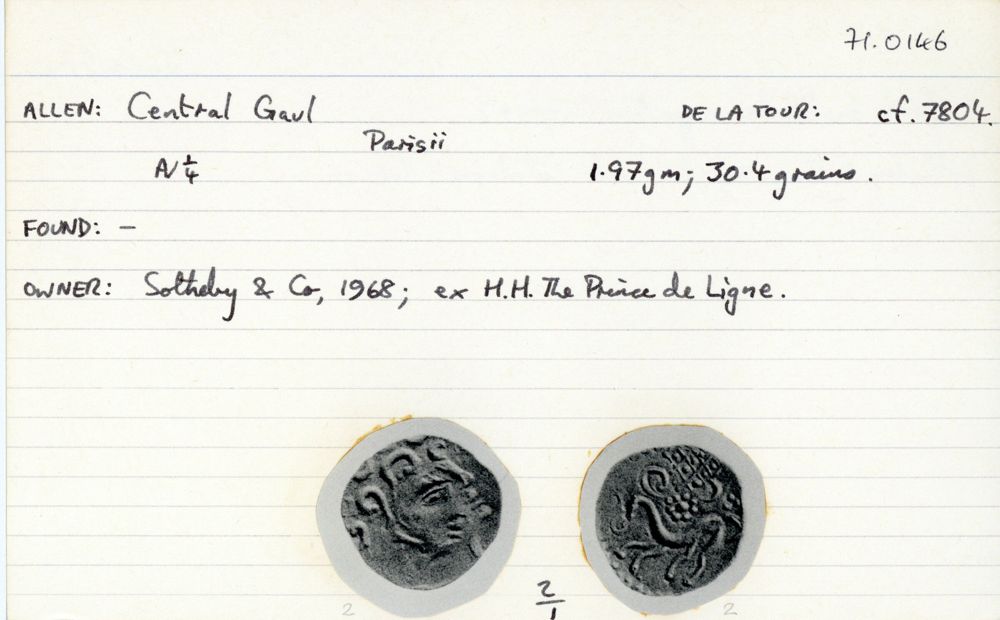 71.0146
ALLEN: Central Gaul DE LA TOUR: cf. 7804.
Parisii
AV 1/4 1.97gm; 30.4 grains.
FOUND: —
OWNER: Sotheby & Co, 1968; ex H.H. The Prince de Ligne.
2/1
2 2